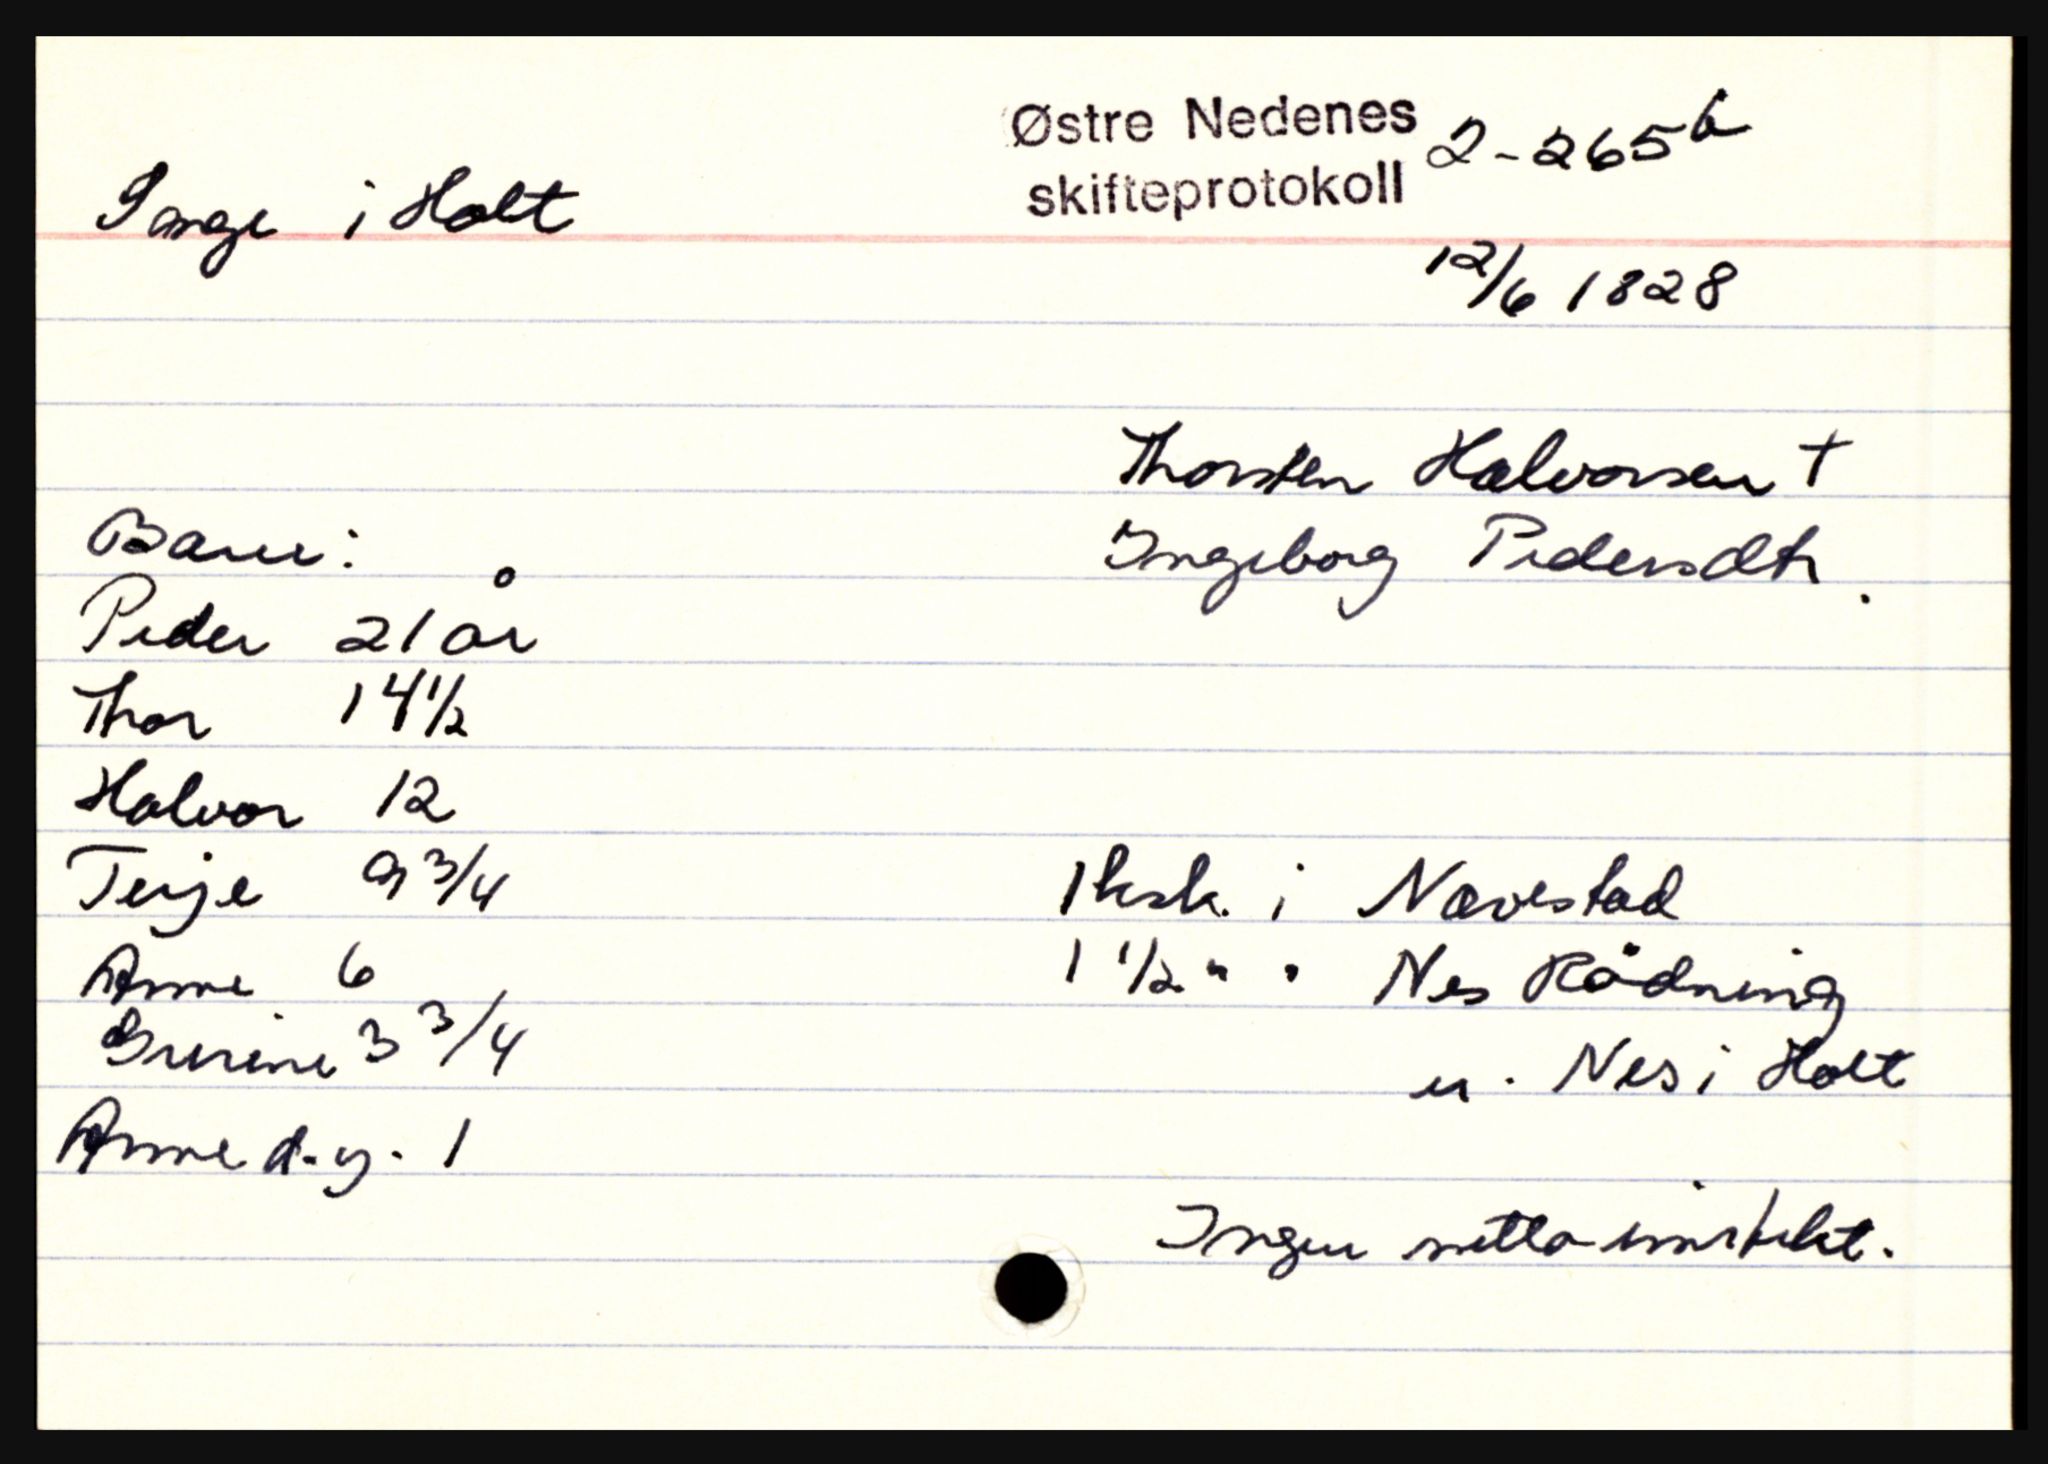 Østre Nedenes 2-265b
skifteprotokoll
Songe i Holt
12/6 1828
Thorsten Halvorsen †
Ingeborg Pedersdtr.
Barn:
Peder 21 år
Thor 14 1/2
Halvor 12
Terje 9 3/4
Anne 6
Gurine 3 3/4
Anne d.y. 1
1 ksk. i Navestad
1 1/2 " " Nes Rödning
u. Nes i Holt
Ingen netto inntekt.